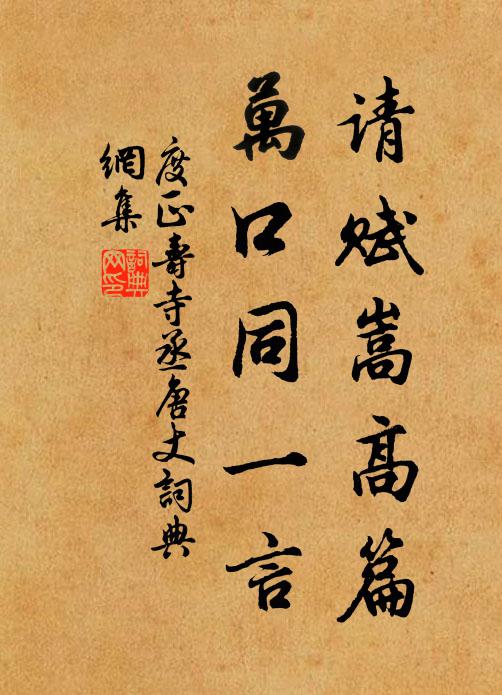 请赋嵩高篇
萬口同一言
度正壽寺丞唐丈詞典
網集
詞典
网印